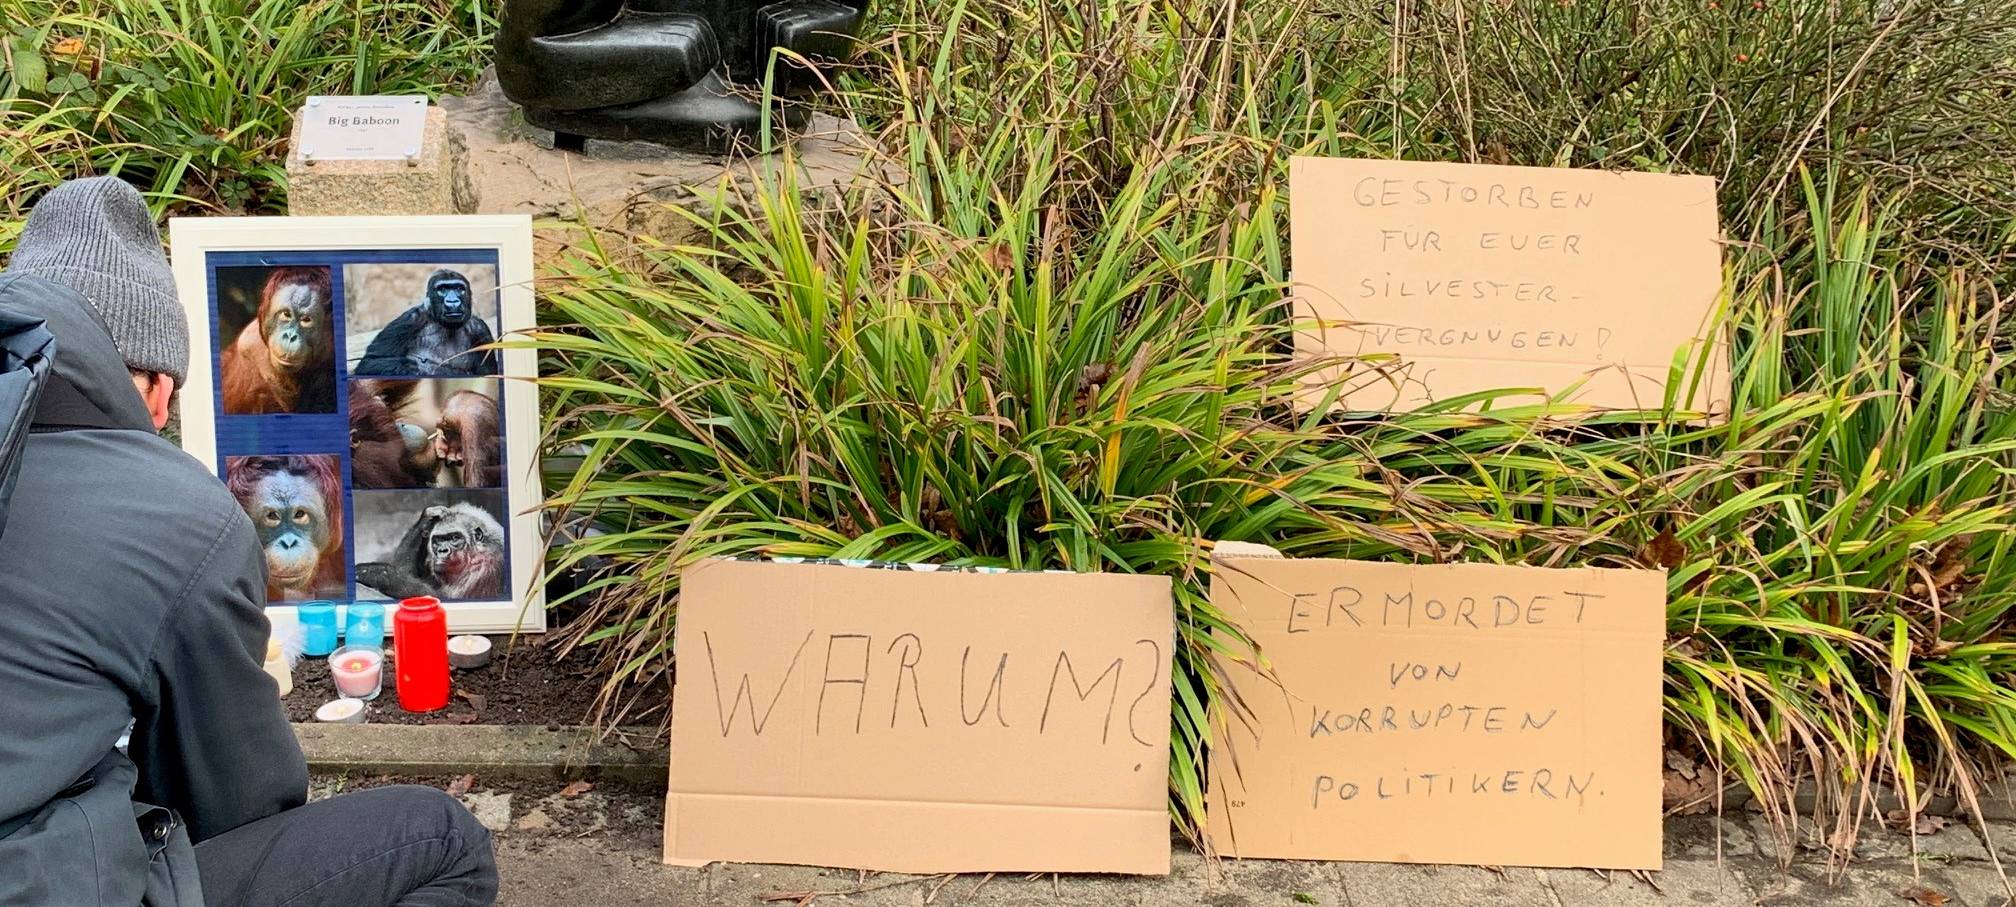 Big Baboon
GESTORBEN
FÜR EUER
SILVESTER-
VERGNÜGEN!
WARUM?
ERMORDET
VON
KORRUPTEN
POLITIKERN.
479